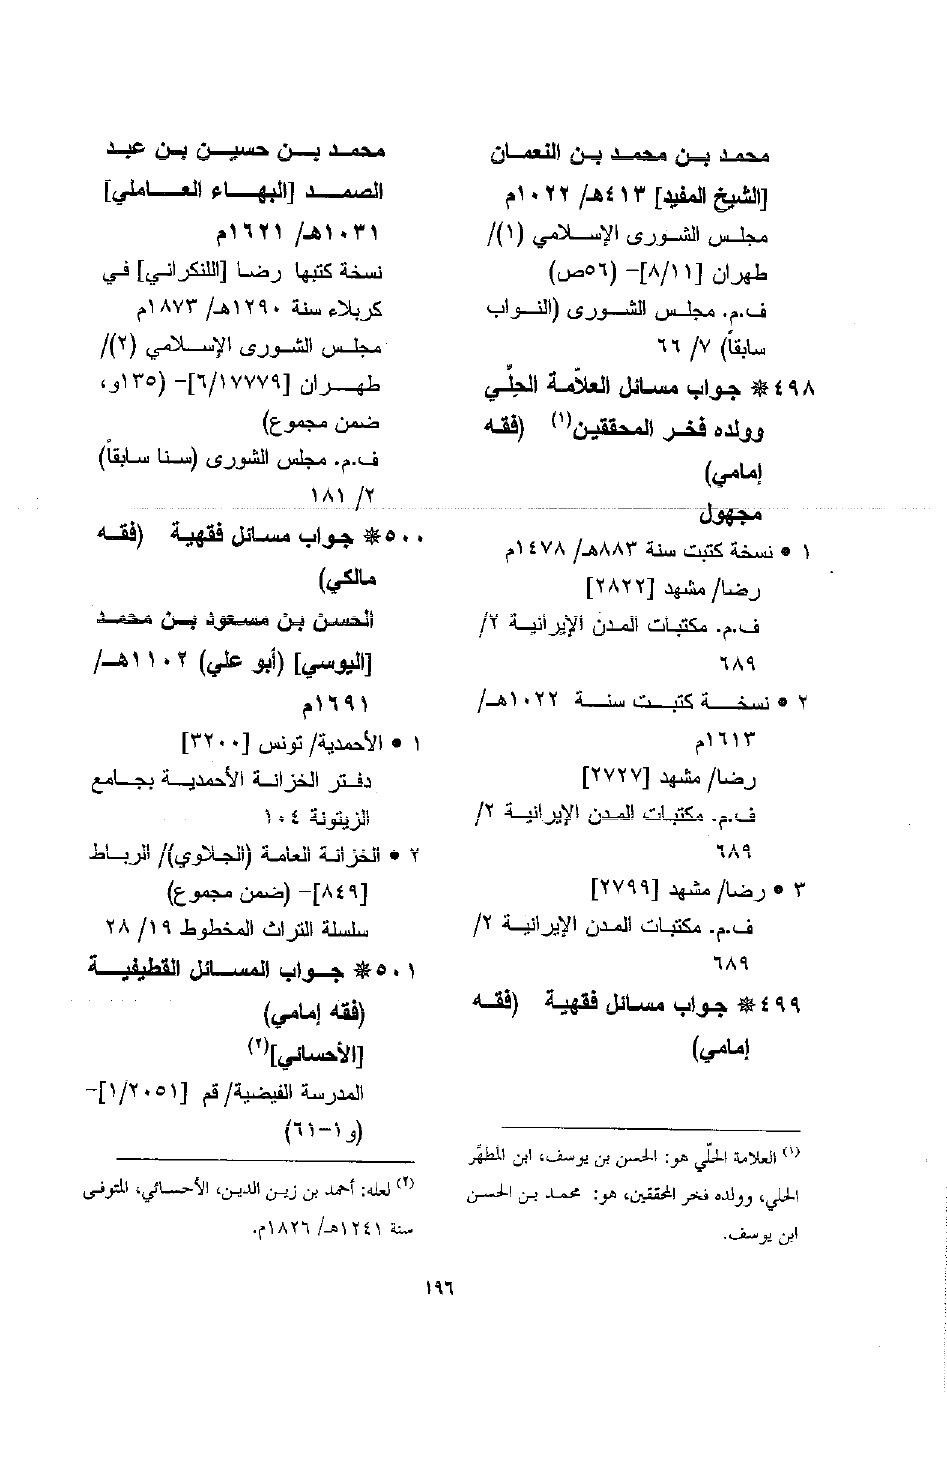 محمد بن محمد بن النعمان
[الشيخ المفيد] ٤١٣هـ/ ١٠٢٢م
مجلس الشورى الإسلامي (١)/
طهران [٨/١١]- (٥٦ص)
ف.م. مجلس الشورى (النواب
سابقاً) ٧/ ٦٦
٤٩٨* جواب مسائل العلاّمة الحلّي
وولده فخر المحققين(١) (فقه
إمامي)
مجهول
١ • نسخة كتبت سنة ٨٨٣هـ/ ١٤٧٨م
رضا/ مشهد [٢٨٢٢]
ف.م. مكتبات المدن الإيرانية ٢/
٦٨٩
٢ • نسخة كتبت سنة ١٠٢٢هـ/
١٦١٣م
رضا/ مشهد [٢٧٢٧]
ف.م. مكتبات المدن الإيرانية ٢/
٦٨٩
٣ • رضا/ مشهد [٢٧٩٩]
ف.م. مكتبات المدن الإيرانية ٢/
٦٨٩
٤٩٩* جواب مسائل فقهية (فقه
إمامي)
(١) العلامة الحلّي هو: الحسن بن يوسف، ابن المطهّر
الحلي، وولده فخر المحققين، هو: محمد بن الحسن
ابن يوسف.
محمد بن حسين بن عبد
الصمد [البهاء العاملي]
١٠٣١هـ/ ١٦٢١م
نسخة كتبها رضا [اللنكراني] في
كربلاء سنة ١٢٩٠هـ/ ١٨٧٣م
مجلس الشورى الإسلامي (٢)/
طهران [٦/١٧٧٧٩]- (١٣٥و،
ضمن مجموع)
ف.م. مجلس الشورى (سنا سابقاً)
٢/ ١٨١
٥٠٠* جواب مسائل فقهية (فقه
مالكي)
الحسن بن مسعود بن محمد
[اليوسي] (أبو علي) ١١٠٢هـ/
١٦٩١م
١ • الأحمدية/ تونس [٣٢٠٠]
دفتر الخزانة الأحمدية بجامع
الزيتونة ١٠٤
٢ • الخزانة العامة (الجلاوي)/ الرباط
[٨٤٩]- (ضمن مجموع)
سلسلة التراث المخطوط ١٩/ ٢٨
٥٠١* جواب المسائل القطيفية
(فقه إمامي)
[الأحسائي](٢)
المدرسة الفيضية/ قم [١/٢٠٥١]-
(و١-٦١)
(٢) لعله: أحمد بن زين الدين، الأحسائي، المتوفى
سنة ١٢٤١هـ/ ١٨٢٦م.
١٩٦